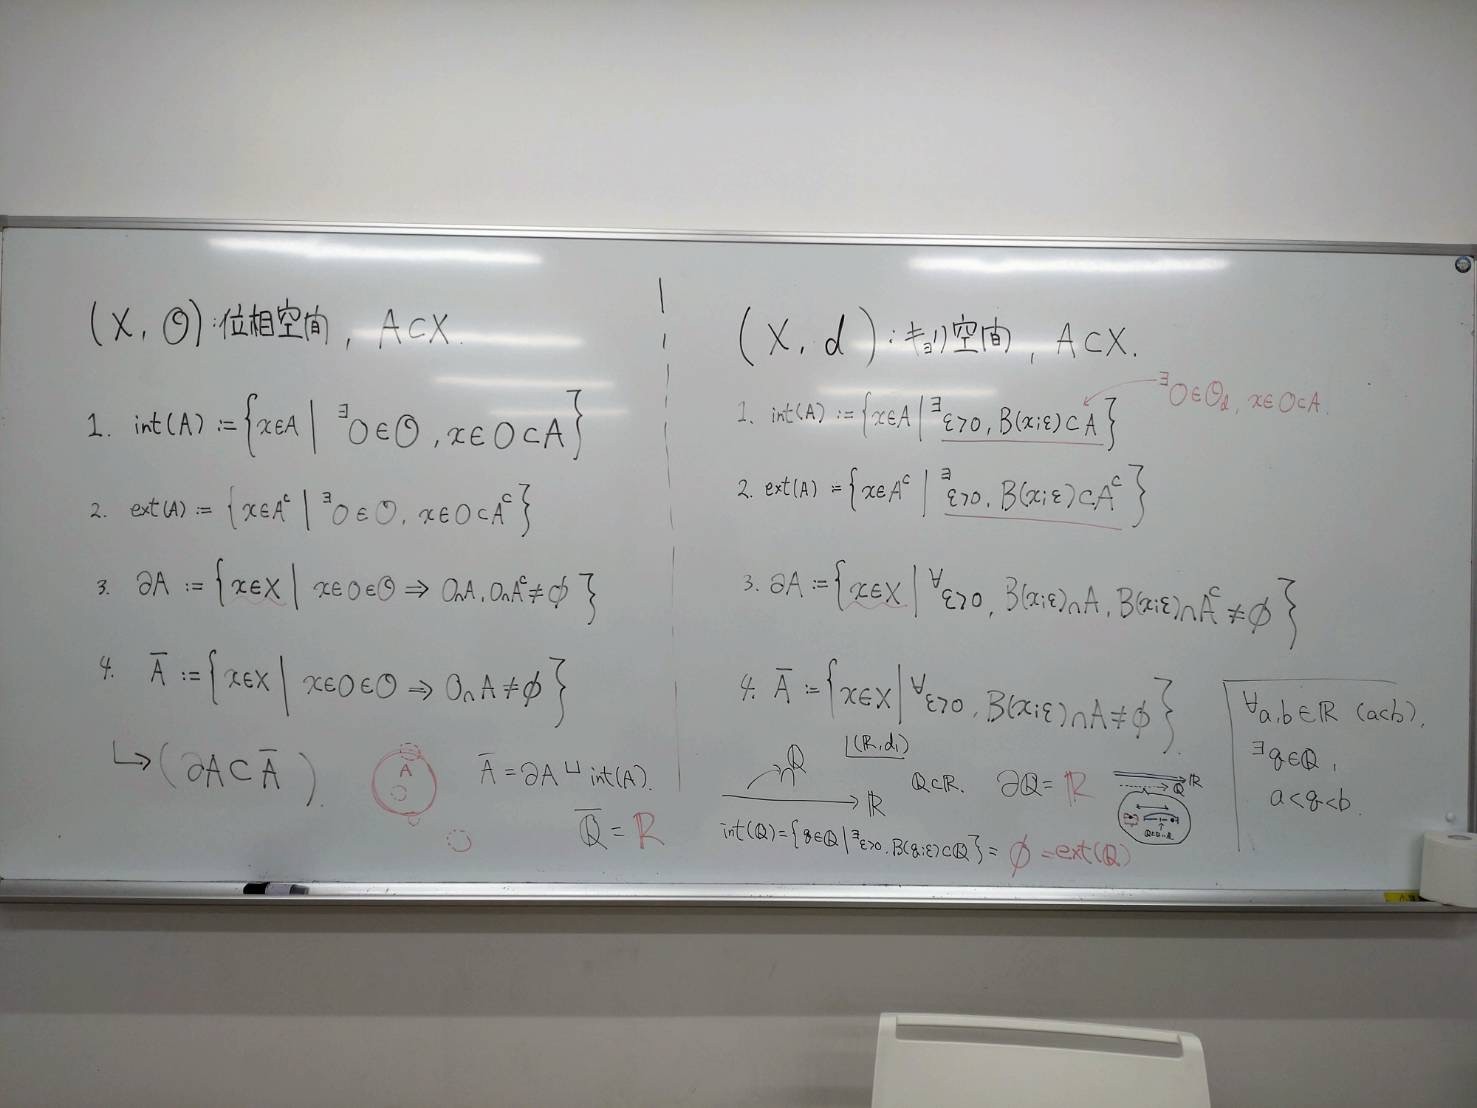 (X, 𝒪): 位相空間, A⊂X.
1. int(A) := {x∈A | ∃O∈𝒪, x∈O⊂A}
2. ext(A) := {x∈Aᶜ | ∃O∈𝒪, x∈O⊂Aᶜ}
3. ∂A := {x∈X | x∈O∈𝒪 ⇒ O∩A, O∩Aᶜ≠∅}
4. Ā := {x∈X | x∈O∈𝒪 ⇒ O∩A≠∅}
↳ (∂A⊂Ā).
A
Ā = ∂A ⊔ int(A).
ℚ̄ = ℝ
(X, d): キョリ空間, A⊂X.
∃O∈𝒪d, x∈O⊂A.
1. int(A) := {x∈A | ∃ε>0, B(x;ε)⊂A}
2. ext(A) := {x∈Aᶜ | ∃ε>0, B(x;ε)⊂Aᶜ}
3. ∂A := {x∈X | ∀ε>0, B(x;ε)∩A, B(x;ε)∩Aᶜ≠∅}
4. Ā := {x∈X | ∀ε>0, B(x;ε)∩A≠∅}.
(ℝ, d₁)
ℚ
ℝ
ℚ⊂ℝ.
∂ℚ = ℝ
ℝ
ℚ
int(ℚ) = {q∈ℚ | ∃ε>0, B(q;ε)⊂ℚ} = ∅ = ext(ℚ)
∀a,b∈ℝ (a<b),
∃q∈ℚ,
a<q<b.